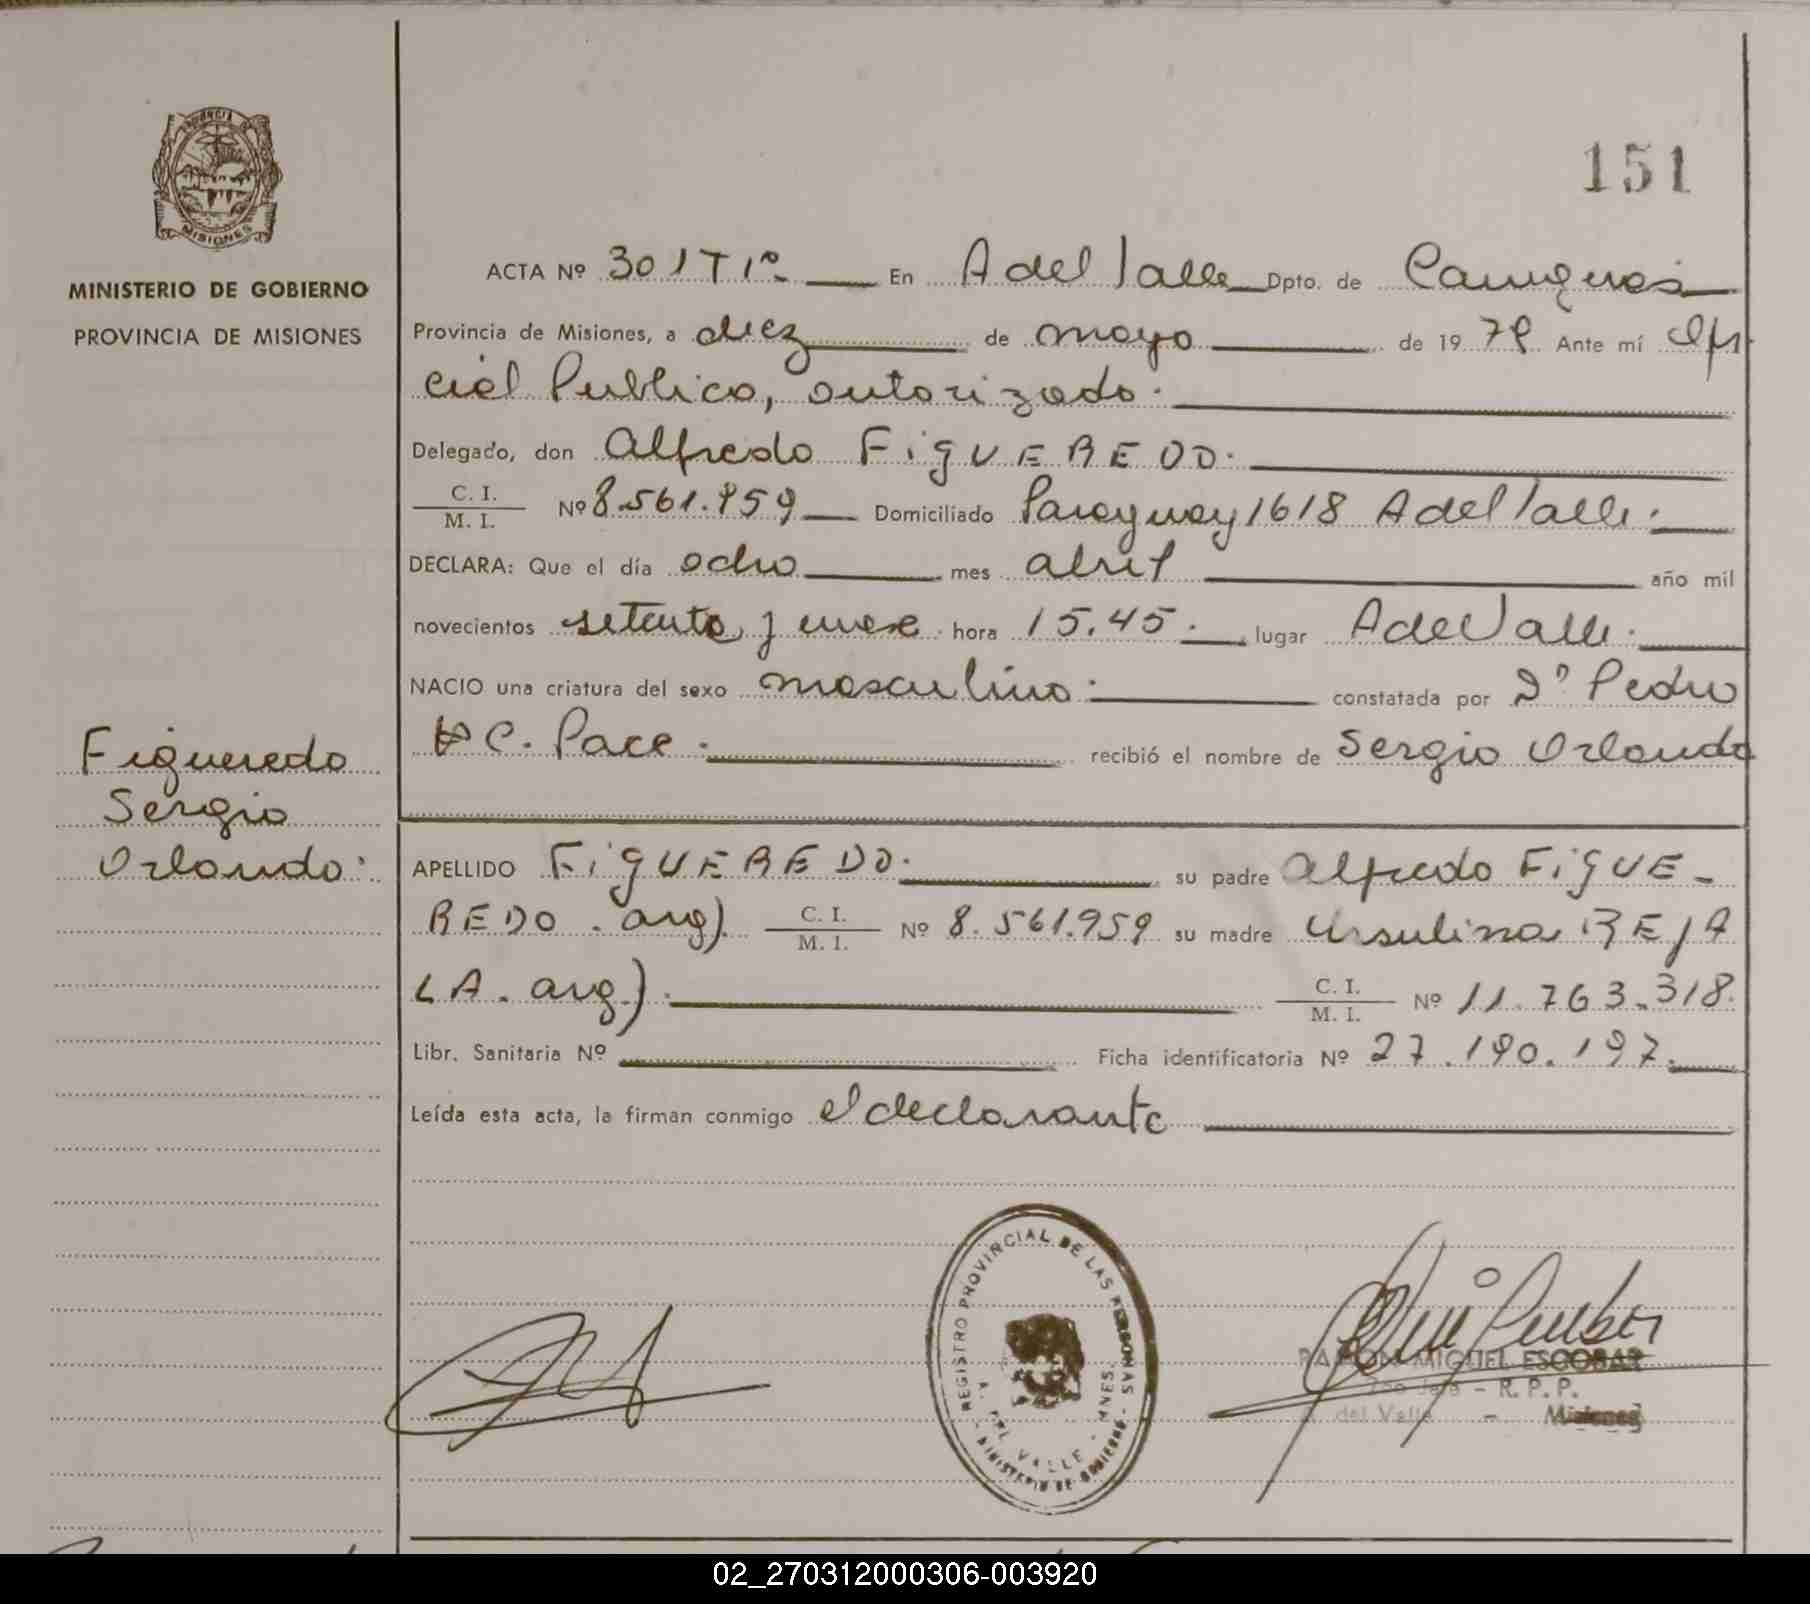 PROVINCIA DE
MISIONES
MINISTERIO DE GOBIERNO
PROVINCIA DE MISIONES
151
ACTA Nº 301 T 1º En A del Valle Dpto. de Cainguas
Provincia de Misiones, a diez de mayo de 1979 Ante mí Ofi
cial Publico, autorizado.
Delegado, don Alfredo FIGUEREDO.
C. I.
M. I. Nº 8.561.959 Domiciliado Paraguay 1618 A del Valle.
DECLARA: Que el día ocho mes abril año mil
novecientos setenta y nueve hora 15.45. lugar A del Valle.
NACIO una criatura del sexo masculino. constatada por Dº Pedro
C. Pace. recibió el nombre de Sergio Orlando
Figueredo
Sergio
Orlando.
APELLIDO FIGUEREDO. su padre Alfredo FIGUE-
REDO. arg) C. I.
M. I. Nº 8.561.959 su madre Ursulina REJA
LA. arg). C. I.
M. I. Nº 11.763.318.
Libr. Sanitaria Nº Ficha identificatoria Nº 27.190.197.
Leída esta acta, la firman conmigo el declarante
REGISTRO PROVINCIAL DE LAS PERSONAS
A. DEL VALLE - MNES.
MINISTERIO DE GOBIERNO
RAMON MIGUEL ESCOBAR
Jefe - R. P. P.
A. del Valle - Misiones
02_270312000306-003920